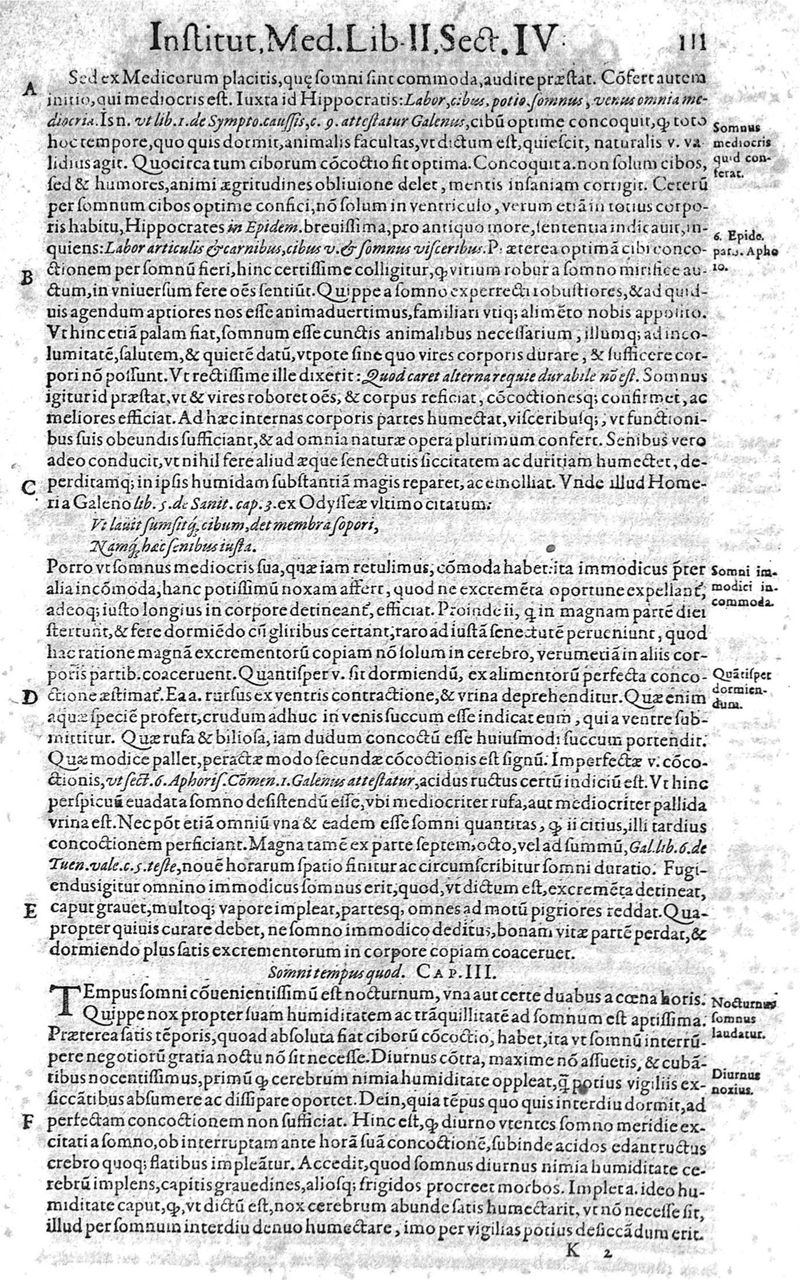 Institut. Med. Lib. II. Sect. IV. 111
A
Sed ex Medicorum placitis, quę somni sint commoda, audire præstat. Cōfert autem
initio, qui mediocris est. Iuxta id Hippocratis: Labor, cibus, potio, somnus, venus omnia me-
diocria. Is n. vt lib. 1. de Sympto. caussis, c. 9. attestatur Galenus, cibū optime concoquit, ꝙ toto
hoc tempore, quo quis dormit, animalis facultas, vt dictum est, quiescit, naturalis v. va-
lidius agit. Quocirca tum ciborum cōcoctio fit optima. Concoquit a. non solum cibos,
sed & humores, animi ægritudines obliuione delet, mentis insaniam corrigit. Ceterū
per somnum cibos optime confici, nō solum in ventriculo, verum etiā in totius corpo-
ris habitu, Hippocrates in Epidem. breuissima, pro antiquo more, sententia indicauit, in-
quiens: Labor articulis & carnibus, cibus v. & somnus visceribus. Præterea optimā cibi conco-
Somnus
mediocris
quid con-
ferat.
6. Epide.
par. . Apho
10.
B
ctionem per somnū fieri, hinc certissime colligitur, ꝙ virium robur a somno mirifice au-
ctum, in vniuersum fere oēs sentiūt. Quippe a somno experrecti robustiores, & ad quid-
uis agendum aptiores nos esse animaduertimus, familiari vtiq; alimēto nobis apposito.
Vt hinc etiā palam fiat, somnum esse cunctis animalibus necessarium, illumq; ad inco-
lumitatē, salutem, & quietē datū, vtpote sine quo vires corporis durare, & sufficere cor-
pori nō possunt. Vt rectissime ille dixerit: Quod caret alterna requie durabile nō est. Somnus
igitur id præstat, vt & vires roboret oēs, & corpus reficiat, cōcoctionesq; confirmet, ac
meliores efficiat. Ad hæc internas corporis partes humectat, visceribusq;, vt functioni-
bus suis obeundis sufficiant, & ad omnia naturæ opera plurimum confert. Senibus vero
adeo conducit, vt nihil fere aliud æque senectutis siccitatem ac duritiam humectet, de-
C
perditamq; in ipsis humidam substantiā magis reparet, ac emolliat. Vnde illud Home-
ri a Galeno lib. 5. de Sanit. cap. 3. ex Odysseæ vltimo citatum:
Vt lauit sumsitq́; cibum, det membra sopori,
Namq́; hæc senibus iusta.
Porro vt somnus mediocris sua, quæ iam retulimus, cōmoda habet: ita immodicus p̄ter
alia incōmoda, hanc potissimū noxam affert, quod ne excremēta oportune expellant̄,
adeoq; iusto longius in corpore detineant̄, efficiat. Proinde ii, q̄ in magnam partē diei
stertunt, & fere dormiēdo cū gliribus certant, raro ad iustā senectutē perueniunt, quod
hac ratione magnā excrementorū copiam nō solum in cerebro, verumetiā in aliis cor-
poris partib. coaceruent. Quantisper v. sit dormiendū, ex alimentorū perfecta conco-
Somni im-
modici in-
commoda.
Quātisper
dormien-
dum.
D
ctione æstimat̄. Ea a. rursus ex ventris contractione, & vrina deprehenditur. Quæ enim
aquæ speciē profert, crudum adhuc in venis succum esse indicat eum, qui a ventre sub-
mittitur. Quæ rufa & biliosa, iam dudum concoctū esse huiusmodi succum portendit.
Quæ modice pallet, peractæ modo secundæ cōcoctionis est signū. Imperfectæ v. cōco-
ctionis, vt sect. 6. Aphoris. Cōmen. 1. Galenus attestatur, acidus ructus certū indiciū est. Vt hinc
perspicuū euadat a somno desistendū esse, vbi mediocriter rufa, aut mediocriter pallida
vrina est. Nec pōt etiā omniū vna & eadem esse somni quantitas, ꝙ ii citius, illi tardius
concoctionem perficiant. Magna tamē ex parte septem, octo, vel ad summū, Gal. lib. 6. de
Tuen. vale. c. 5. teste, nouē horarum spatio finitur ac circumscribitur somni duratio. Fugi-
endus igitur omnino immodicus somnus erit, quod, vt dictum est, excremēta detineat,
E
caput grauet, multoq; vapore impleat, partesq; omnes ad motū pigriores reddat. Qua-
propter quiuis curare debet, ne somno immodico deditus, bonam vitæ partē perdat, &
dormiendo plus satis excrementorum in corpore copiam coaceruet.
Somni tempus quod. CAP. III.
TEmpus somni cōuenientissimū est nocturnum, vna aut certe duabus a cœna horis.
Quippe nox propter suam humiditatem ac trāquillitatē ad somnum est aptissima.
Præterea satis tēporis, quoad absoluta fiat ciborū cōcoctio, habet, ita vt somnū interrū-
pere negotiorū gratia noctu nō sit necesse. Diurnus cōtra, maxime nō assuetis, & cubā-
tibus nocentissimus, primū ꝙ cerebrum nimia humiditate oppleat, q̄ potius vigiliis ex-
siccātibus absumere ac dissipare oportet. Dein, quia tēpus quo quis interdiu dormit, ad
Nocturnus
somnus
laudatur.
Diurnus
noxius.
F
perfectam concoctionem non sufficiat. Hinc est, ꝙ diurno vtentes somno meridie ex-
citati a somno, ob interruptam ante horā suā concoctionē, subinde acidos edant ructus
crebro quoq; flatibus impleātur. Accedit, quod somnus diurnus nimia humiditate ce-
rebrū implens, capitis grauedines, aliosq; frigidos procreet morbos. Implet a. ideo hu-
miditate caput, ꝙ, vt dictū est, nox cerebrum abunde satis humectarit, vt nō necesse sit,
illud per somnum interdiu denuo humectare, imo per vigilias potius desiccādum erit.
K 2